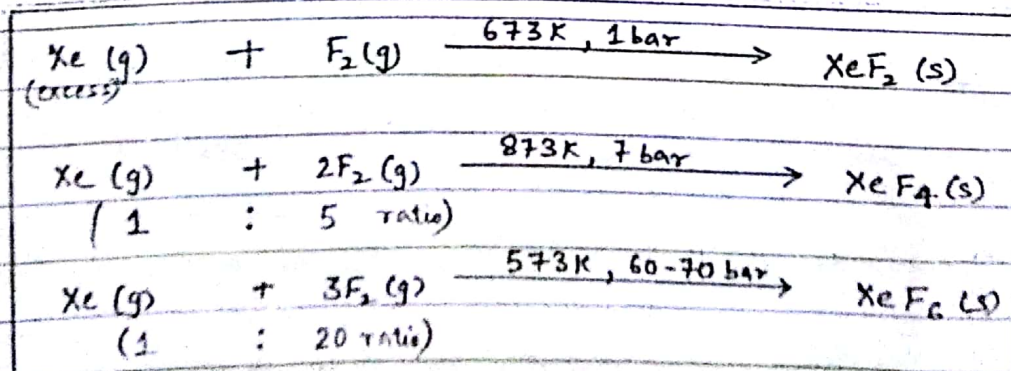 Xe (g) + F₂(g) 673K, 1 bar → XeF₂ (s)
(excess)
Xe (g) + 2F₂ (g) 873K, 7 bar → XeF₄ (s)
(1 : 5 ratio)
Xe (g) + 3F₂ (g) 573K, 60-70 bar → XeF₆ (s)
(1 : 20 ratio)